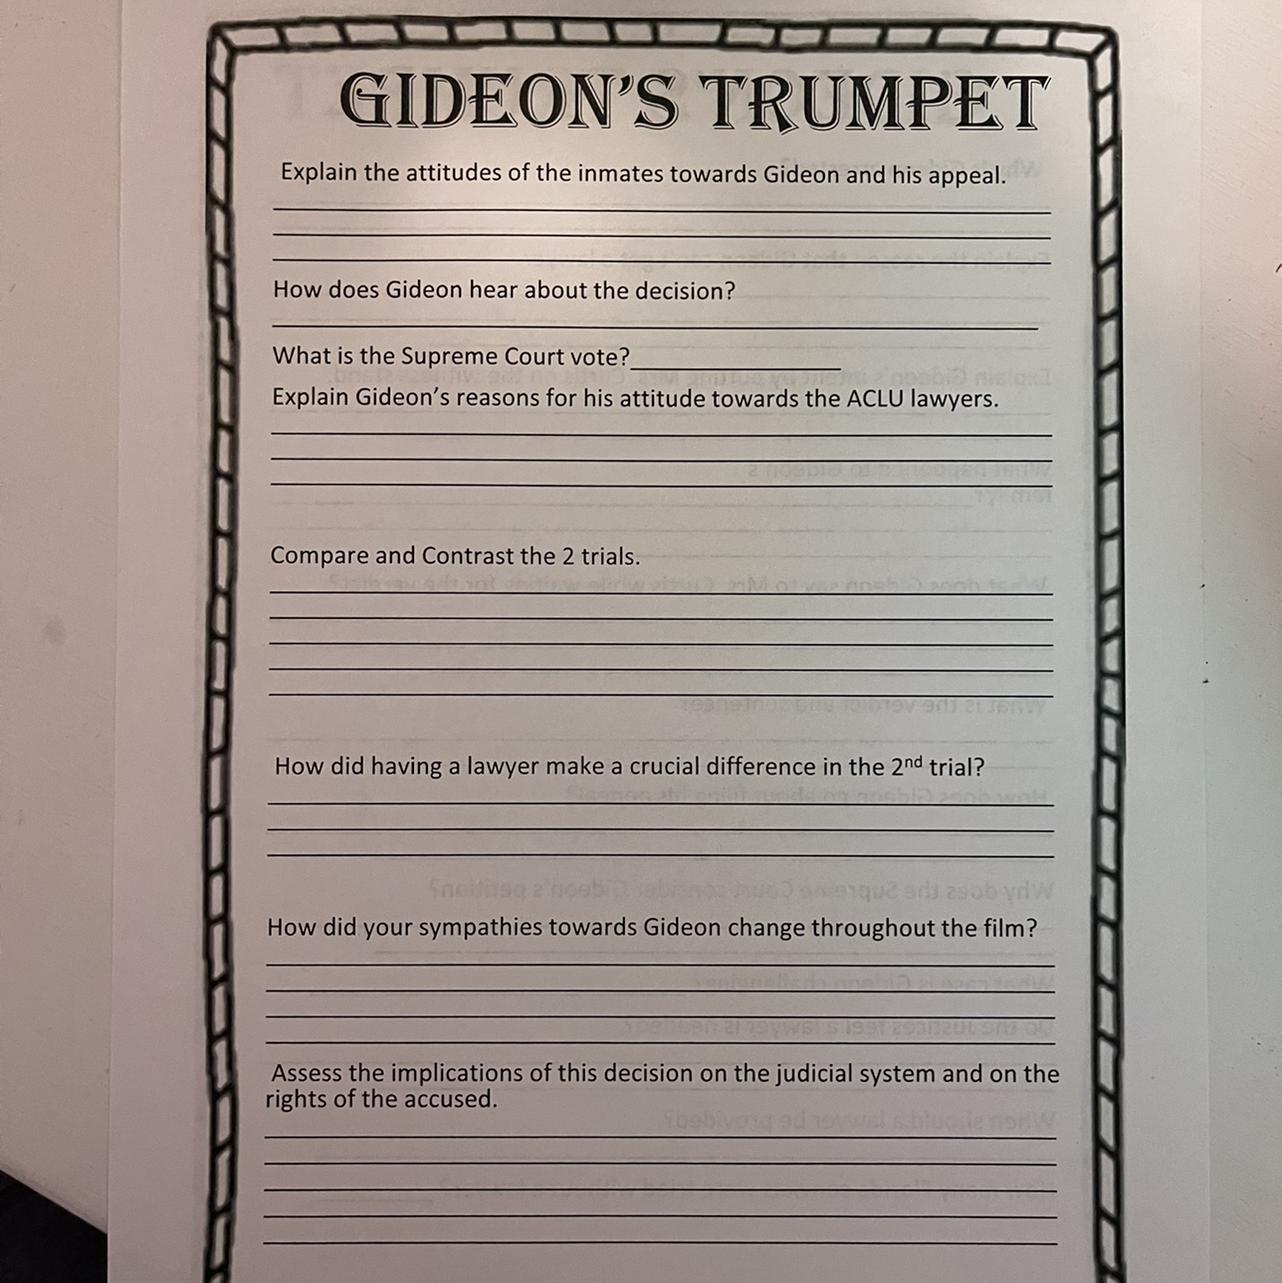 GIDEON'S TRUMPET
Explain the attitudes of the inmates towards Gideon and his appeal.
How does Gideon hear about the decision?
What is the Supreme Court vote?
Explain Gideon's reasons for his attitude towards the ACLU lawyers.
Compare and Contrast the 2 trials.
How did having a lawyer make a crucial difference in the 2nd trial?
How did your sympathies towards Gideon change throughout the film?
Assess the implications of this decision on the judicial system and on the
rights of the accused.